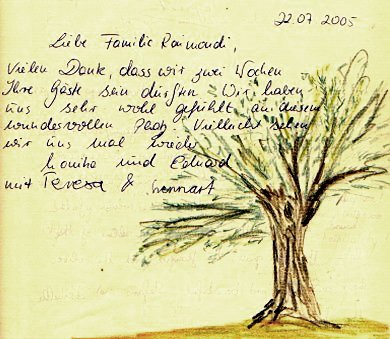 22.07 2005
Liebe Familie Raimondi,
Vielen Dank, dass wir zwei Wochen
Ihre Gäste sein durften Wir haben
uns sehr wohl gefühlt an diesem
wundervollen Platz. Vielleicht sehen
wir uns mal wieder
Monika und Eduard
mit Teresa & Lennart